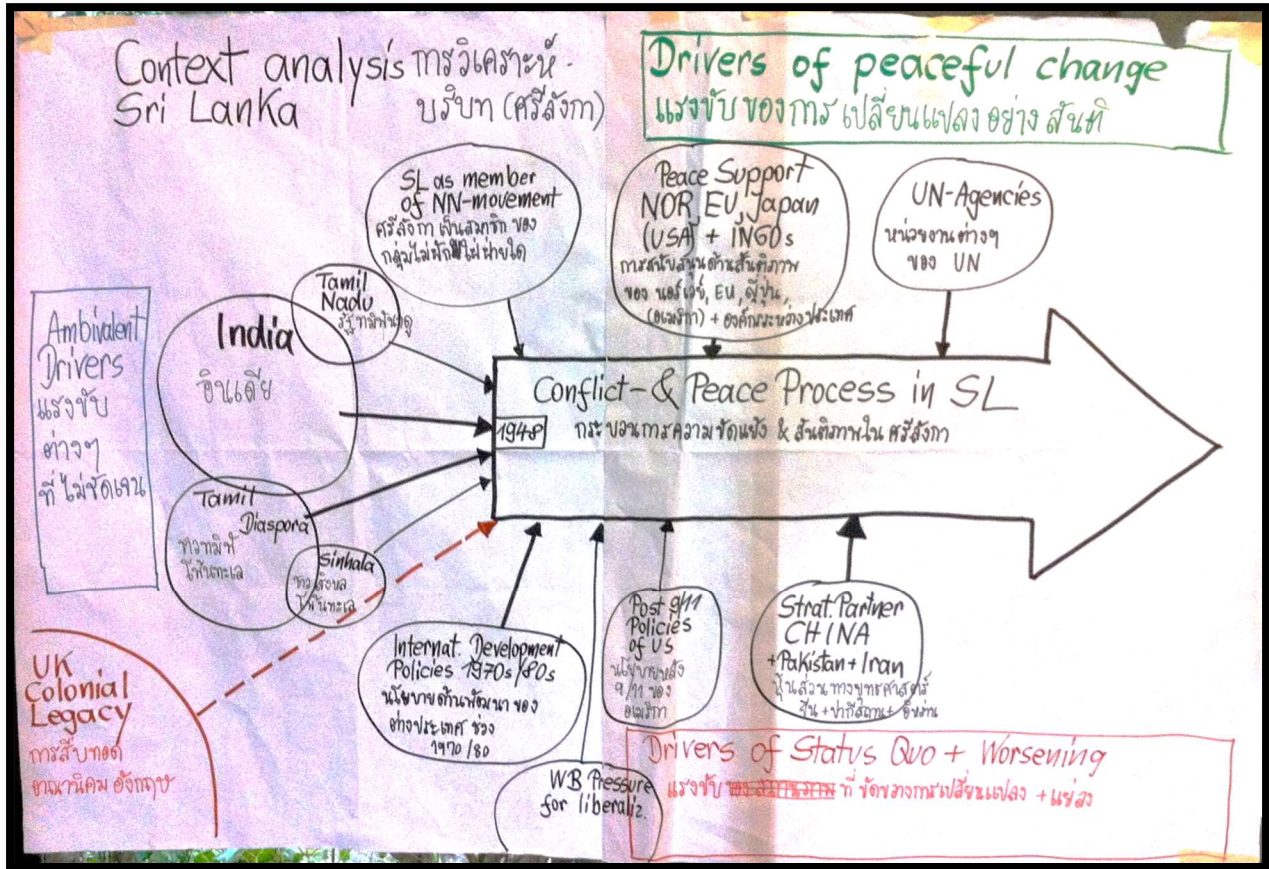 Context analysis การวิเคราะห์
Sri Lanka บริบท (ศรีลังกา)
Drivers of peaceful change
แรงขับของการเปลี่ยนแปลงอย่างสันติ
SL as member
of NN-movement
ศรีลังกาเป็นสมาชิกของ
กลุ่มไม่ฝักใฝ่ฝ่ายใด
Peace Support
NOR, EU, Japan
(USA) + INGOs
การสนับสนุนด้านสันติภาพ
ของ นอร์เวย์, EU, ญี่ปุ่น,
(อเมริกา) + องค์กรระหว่างประเทศ
UN-Agencies
หน่วยงานต่างๆ
ของ UN
Ambivalent
Drivers
แรงขับ
ต่างๆ
ที่ไม่ชัดเจน
Tamil
Nadu
รัฐทมิฬนาดู
India
อินเดีย
Tamil
Diaspora
ชาวทมิฬ
โพ้นทะเล
Sinhala
ชาวสิงหล
โพ้นทะเล
Conflict- & Peace Process in SL
1948 กระบวนการความขัดแย้ง & สันติภาพใน ศรีลังกา
UK
Colonial
Legacy
การสืบทอด
อาณานิคม อังกฤษ
Internat. Development
Policies 1970s/80s
นโยบายด้านพัฒนาของ
ต่างประเทศ ช่วง
1970/80
WB Pressure
for liberaliz.
Post 9/11
Policies
of US
นโยบายหลัง
9/11 ของ
อเมริกา
Strat. Partner
CHINA
+Pakistan+Iran
หุ้นส่วนทางยุทธศาสตร์
จีน+ปากีสถาน+อิหร่าน
Drivers of Status Quo + Worsening
แรงขับ ที่ขัดขวางการเปลี่ยนแปลง + แย่ลง